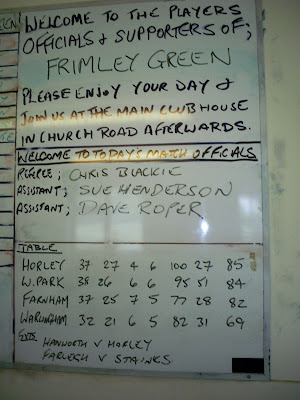 WELCOME TO THE PLAYERS
OFFICIALS & SUPPORTERS OF;
FRIMLEY GREEN
PLEASE ENJOY YOUR DAY &
JOIN US AT THE MAIN CLUB HOUSE
IN CHURCH ROAD AFTERWARDS.
WELCOME TO TODAY'S MATCH OFFICIALS
REFEREE; CHRIS BLACKIE
ASSISTANT; SUE HENDERSON
ASSISTANT; DAVE ROPER
TABLE
HORLEY 37 27 4 6 100 27 85
W. PARK 38 26 6 6 95 51 84
FARNHAM 37 25 7 5 77 28 82
WARLINGHAM 32 21 6 5 82 31 69
HANWORTH V HORLEY
FARLEGH V STAINES